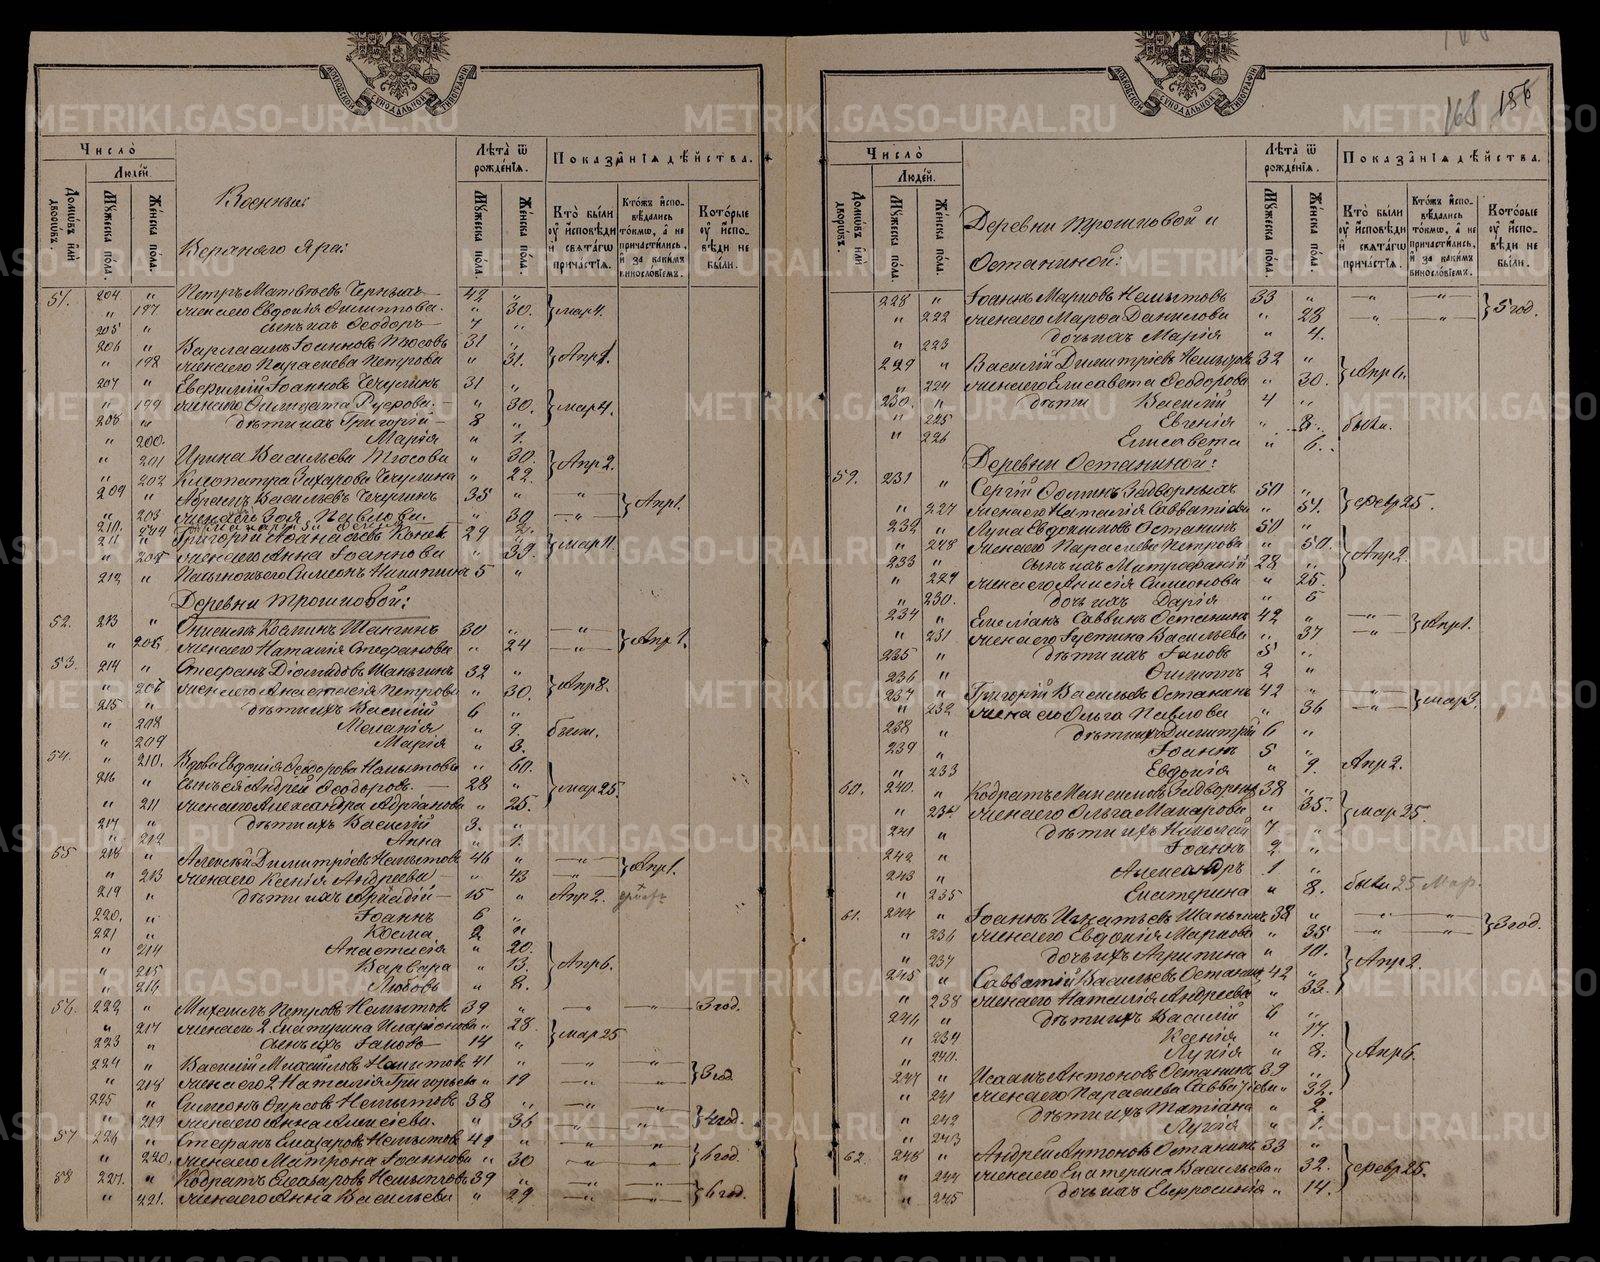 Число
Людей.
Домовъ или дворовъ.
Мужеска пола.
Женска пола.
Военные
Верхняго Яра:
Лѣта ѿ рожденія.
Мужеска пола.
Женска пола.
Показанія дѣйства.
Кто были оу исповѣди и святагѡ причастія.
Ктожъ исповѣдались токмѡ, а не причастились, и за какимъ винословіемъ.
Которые оу исповѣди не были.
51. 204 " Петръ Матвѣевъ Черныхъ 42 "
" 197 жена его Евдокія Филиппова 30. мар 4.
205 " сынъ ихъ Ѳеодоръ 7 "
206 " Варлаамъ Іоанновъ 31 "
" 198 жена его Параскева Петрова " 31. Апр 1.
207 " Евфимій Іоанновъ Чечулинъ 31 "
" 199 жена его " 30. мар 4.
208 " дѣти ихъ Григорій 8 "
" 200. Марія " 1.
" 201 Ирина Васильева " 30. Апр 2.
" 202 Клеопатра Захарова Чечулина " 22.
209 " Абрамъ Васильевъ Чечулинъ 35 " " Апр 1.
" 203 жена его Зоя Павлова " 30
211 " Григорій Аѳанасьевъ 29 "
" 205 жена его Анна Іоаннова " 39. мар 11.
212 " Симеонъ 5 "
Деревни Трошковой:
52. 213 " Онисимъ Козминъ Шангинъ 30 " " Апр 1.
" 206 жена его Наталія Стефанова " 24
53. 214 " Стефанъ Діомидовъ Шаньгинъ 32 "
" 207 жена его Анастасія Петрова " 30. Апр 8.
215 " дѣти ихъ Василій 6 "
" 208 Меланія " 9. были.
" 209 Марія " 3.
54. " 210. Вдова Евдокія Ѳеодорова Немытова " 60.
216 " сынъ ея Андрей Ѳеодоровъ 28 " мар 25.
" 211 жена его Александра Адріанова " 25.
217 " дѣти ихъ Василій 3. "
" 212 Анна " 1.
55 218 " Алексѣй Димитріевъ Немытовъ 46 " " Апр 1.
" 213 жена его Ксенія Андреева " 43
219 " дѣти ихъ Аркадій 15 " Апр 2.
220. " Іоаннъ 6 "
221 " Козма 2 "
" 214 Анастасія " 20.
" 215 Варвара " 13. Апр 6.
" 216 Любовь " 8.
56. 222 " Михаилъ Петровъ Немытовъ 39 " " " 3 год.
" 217 жена его 2. Екатерина Иларіонова " 28. мар 25
223 " сынъ ихъ Іаковъ 14 "
224 " Василій Михайловъ Немытовъ 41 " " " 3 год.
" 218 жена его 2 Наталія Григорьева " 19
225 " Симеонъ Фирсовъ Немытовъ 38 " " " 4 год.
" 219 жена его Анна Алексіева. " 36
57 226 " Стефанъ Елизаровъ Немытовъ 49 " " " 6 год.
" 220. жена его Матрона Іоаннова " 30
58 227. " Кодратъ Елизаровъ Немытовъ 39 " " " 6 год.
" 221. жена его Анна Васильева " 29
168 186
Число
Людей.
Домовъ или дворовъ.
Мужеска пола.
Женска пола.
Деревни Трошковой и
Останиной:
Лѣта ѿ рожденія.
Мужеска пола.
Женска пола.
Показанія дѣйства.
Кто были оу исповѣди и святагѡ причастія.
Ктожъ исповѣдались токмѡ, а не причастились, и за какимъ винословіемъ.
Которые оу исповѣди не были.
228 " Іоаннъ Марковъ Немытовъ 33 " " " 5 год.
" 222 жена его Марѳа Данилова " 28
" 223 дочь ихъ Марія " 4.
229 " Василій Димитріевъ Немытовъ 32 "
" 224 жена его Елисавета Ѳеодорова " 30. Апр 6.
230. " дѣти Василій 4 "
" 225 Евгенія " 8. были.
" 226 Елисавета " 6.
Деревни Останиной:
59. 231 " Сергій Ѳоминъ Задворныхъ 50 "
" 227 жена его Наталія Савватіева " 51. февр 25.
232 " Лука Евдокимовъ Останинъ 50 "
" 228 жена его Параскева Петрова " 50. Апр 2.
233 " сынъ ихъ Митрофаній 28 "
" 229 жена его Анисія Симеонова " 25.
" 230. дочь ихъ Дарія " 5
234 " Емеліанъ Саввинъ Останинъ 42 " " Апр 1.
" 231 жена его Іустина Васильева " 37
235 " дѣти ихъ Іаковъ 5 "
236 " Филиппъ 2 "
237 " Григорій Васильевъ Останинъ 42 " " мар 3.
" 232 жена его Ольга Павлова " 36
238 " дѣти ихъ Димитрій 6 "
239 " Іоаннъ 5 "
" 233 Евдокія " 9. Апр 2.
60. 240. " Кодратъ Максимовъ Задворныхъ 38 "
" 234 жена его Ольга Макарова " 35. мар 25.
241 " дѣти ихъ Николай 7 "
242 " Іоаннъ 2 "
243 " Александръ 1 "
" 235 Екатерина " 8. были 25 Мар.
61. 244 " Іоаннъ Игнатьевъ Шаньгинъ 38 " " " 3 год.
" 236 жена его Евдокія Маркова " 35
" 237 дочь ихъ Агрипина " 10.
245 " Савватій Васильевъ Останинъ 42 " Апр 2.
" 238 жена его Наталія Андреева " 33.
246 " дѣти ихъ Василій 6 "
" 239 Ксенія " 17.
" 240. Лукія " 8. Апр 6.
247 " Исаакъ Антоновъ Останинъ 39 "
" 241 жена его Параскева Савватіева " 32.
" 242 дѣти ихъ Татіана " 2
" 243 Лукія " 1.
62 248 " Андрей Антоновъ Останинъ 33 "
" 244 жена его Екатерина Васильева " 32. февр 25.
" 245 дочь ихъ Евфросинія " 14.
METRIKI.GASO-URAL.RU